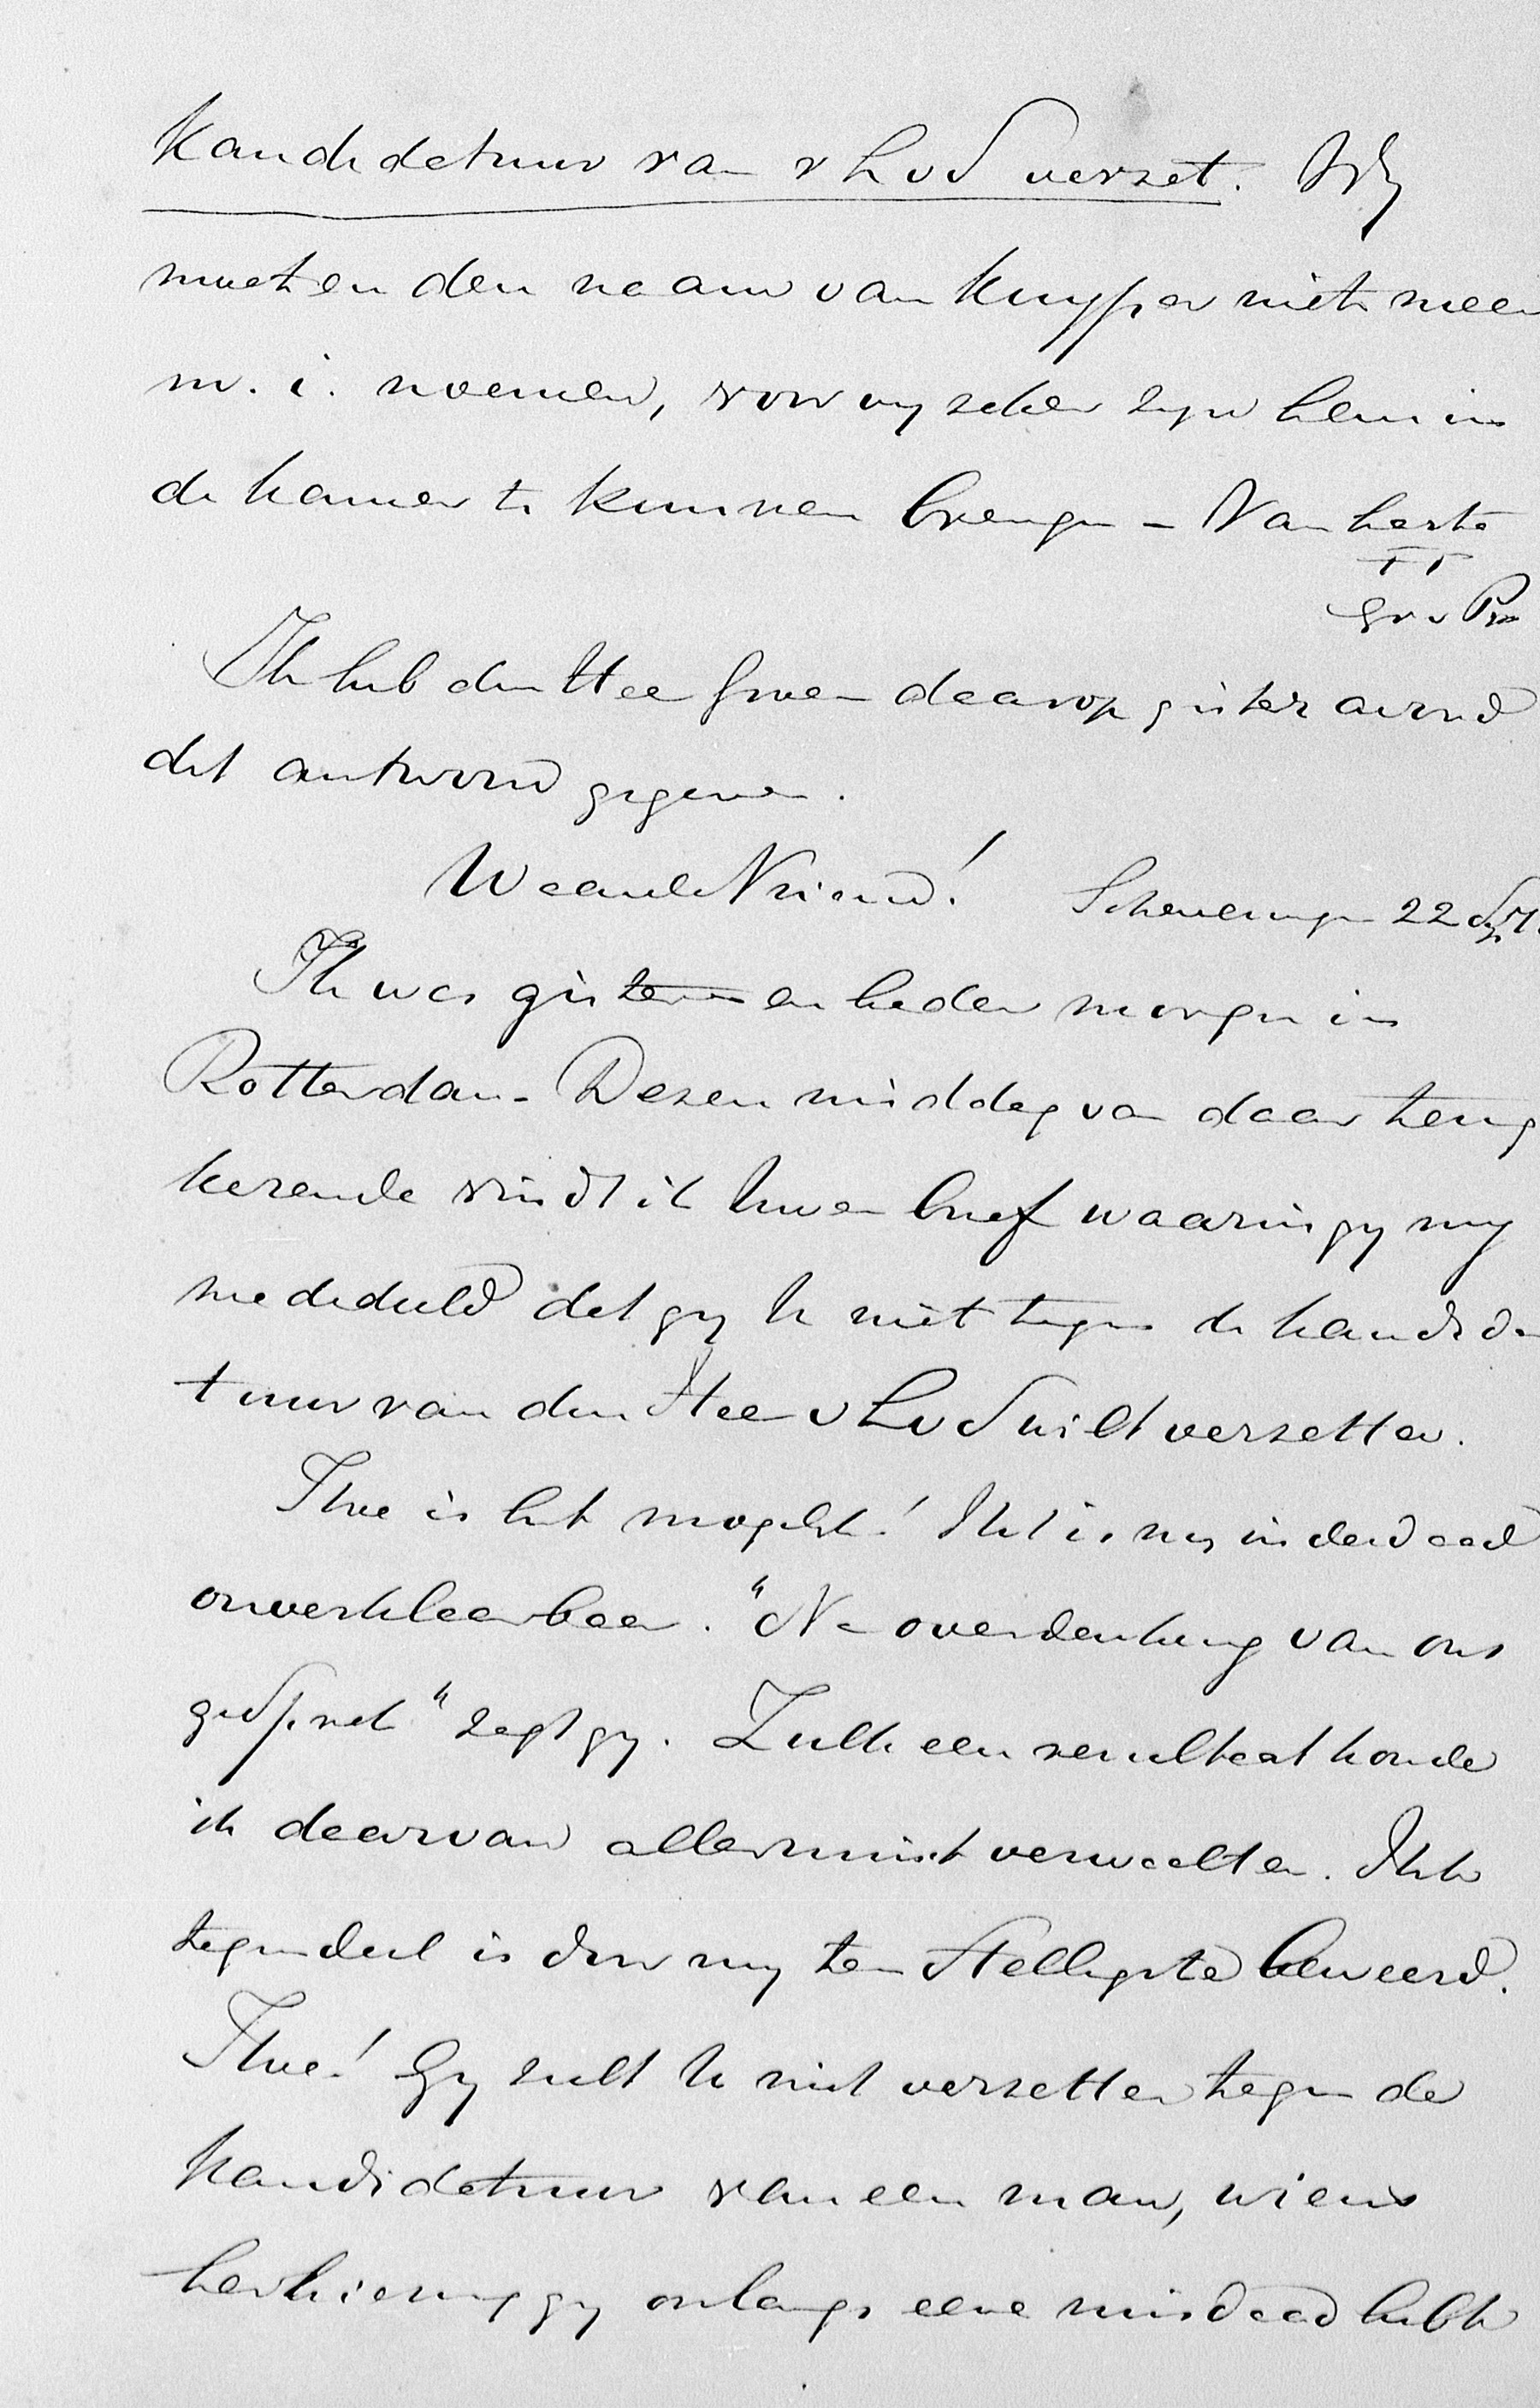 kandidatuur van v L v S verzet. Wy
moeten den naam van Kuyper niet meer
m. i. noemen, voor wy zeker zyn hem in
de kamer te kunnen brengen - Van harte
TT
Gr v Pr
Ik heb den Heer Groen daarop gisteravond
dit antwoord gegeven.
Waarde Vriend! Scheveningen 22 Sept 71.
Ik was gisteren en heden morgen in
Rotterdam. Dezen middag van daar terug
kerende vindt ik Uwen brief waarin gy my
mededeeld dat gy U niet tegen de kandida
tuur van den Heer v L v S wilt verzetten.
Hoe is het mogelyk! Het is my inderdaad
onverklaarbaar. "Na overdenking van ons
gesprek" zegt gy. Zulk een resultaat konde
ik daarvan allerminst verwachten. Het
tegendeel is door my ten stelligste beweerd.
Hoe! Gy zult U niet verzetten tegen de
kandidatuur van een man, wiens
herkiezing gy onlangs eene misdaad hebt